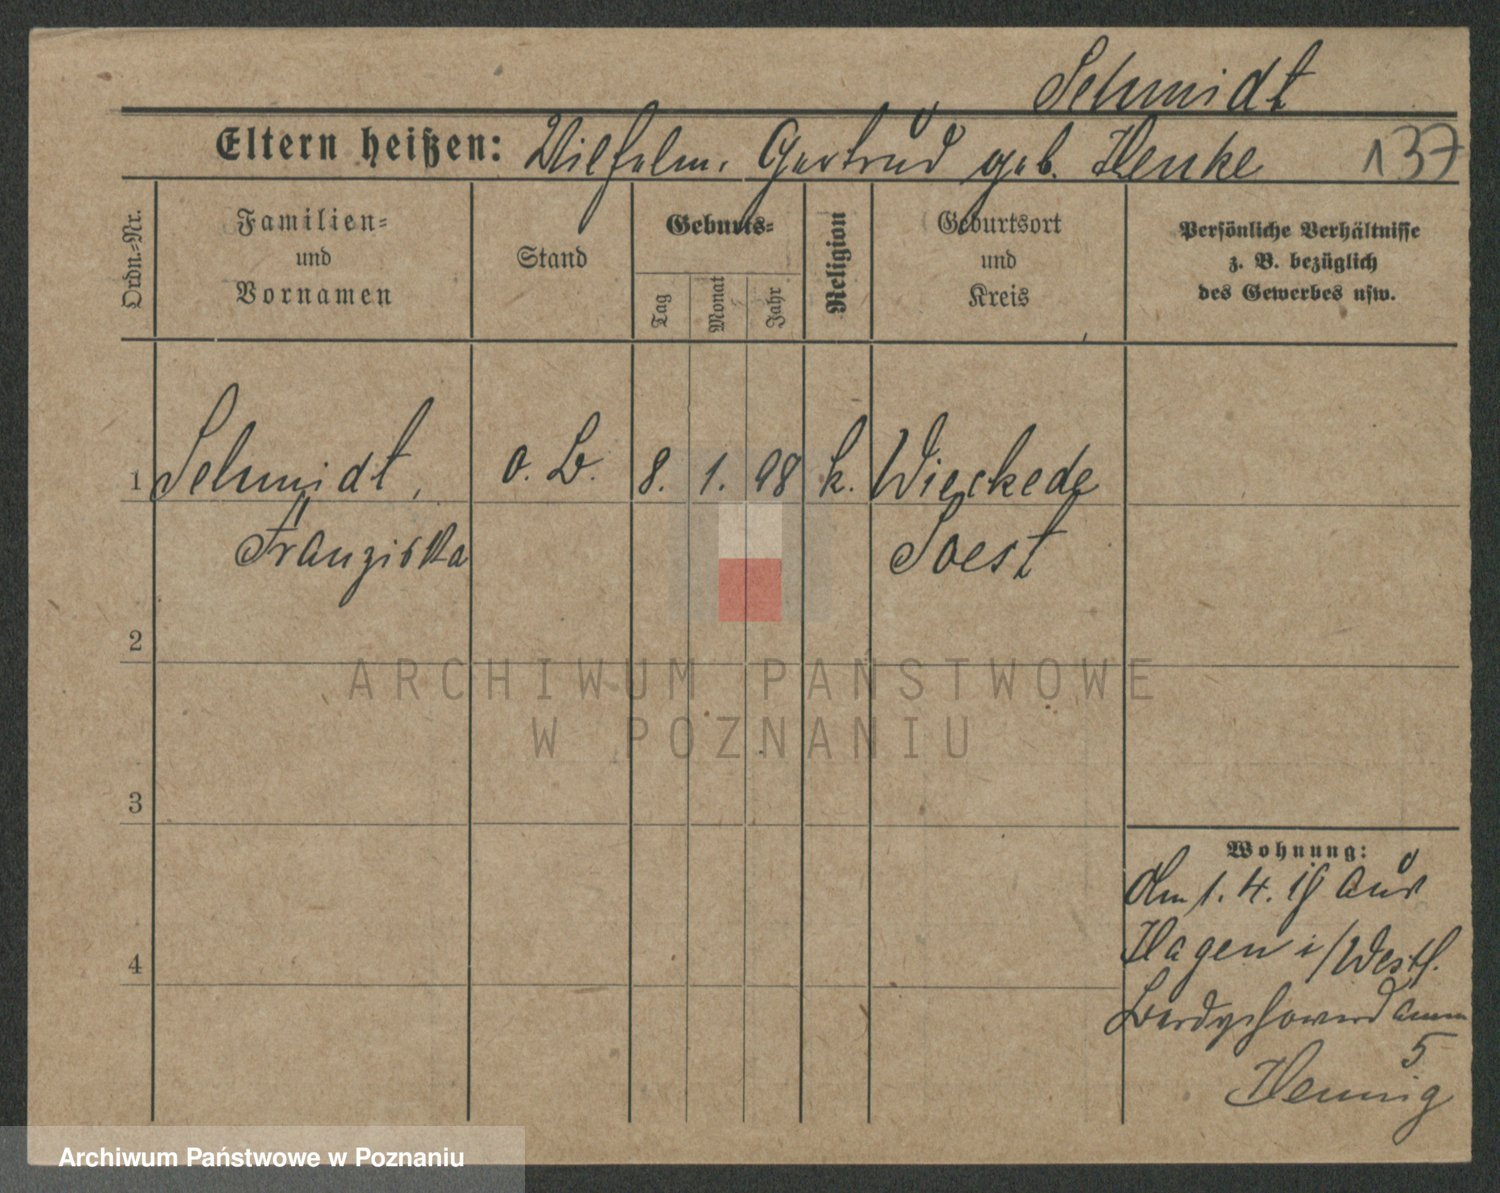 Schmidt
Eltern heißen: Wilhelm. Gertrud geb. Henke
137
Ordn.-Nr.
Familien-
und
Vornamen
Stand
Geburts-
Tag
Monat
Jahr
Religion
Geburtsort
und
Kreis
Persönliche Verhältnisse
z. B. bezüglich
des Gewerbes usw.
1 Schmidt, o. B. 8. 1. 98 k. Wieckede
Franziska Soest
2
3
4
ARCHIWUM PAŃSTWOWE
W POZNANIU
Wohnung:
Am 1. 4. 19 aus
Hagen i/Westf.
5
Hennig
Archiwum Państwowe w Poznaniu